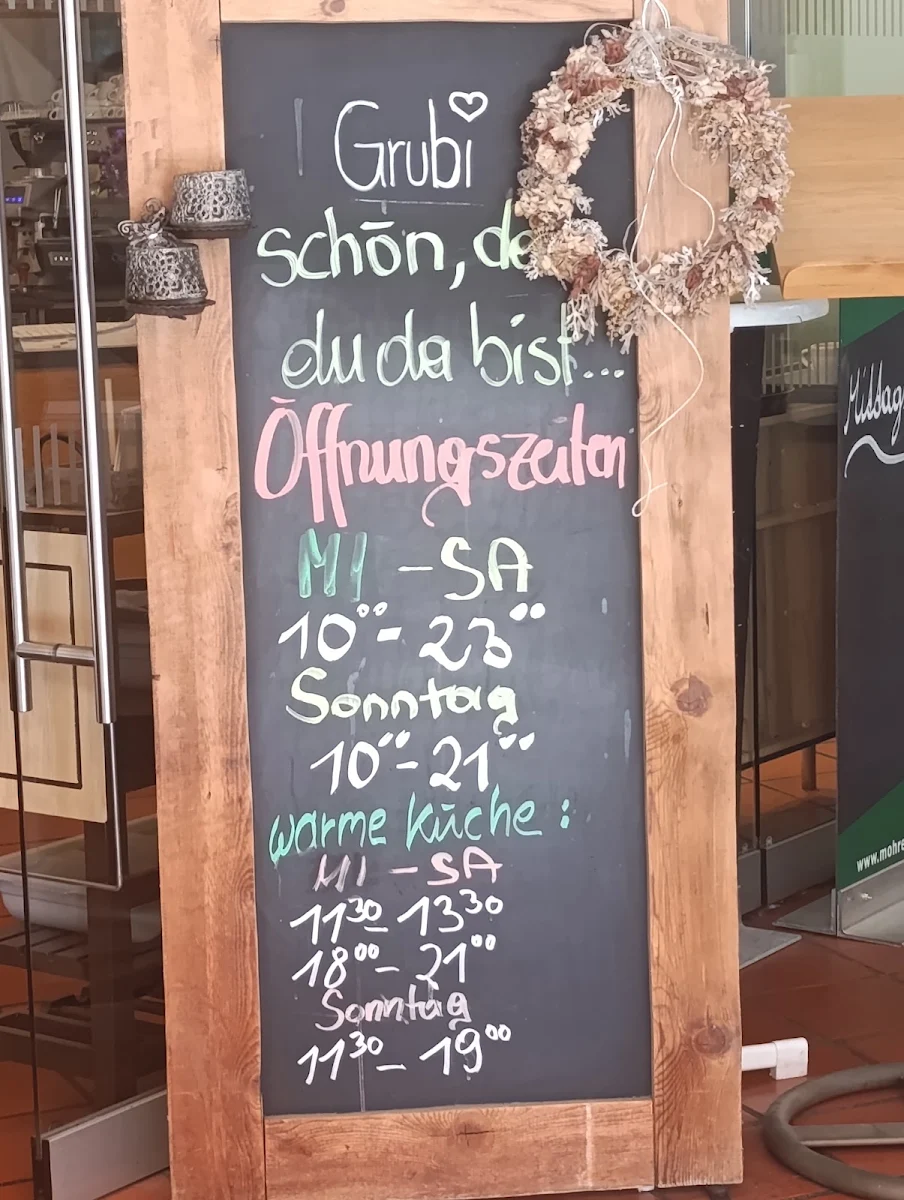 Grubi
schön, de
du da bist...
Öffnungszeiten
MI - SA
10⁰⁰ - 23⁰⁰
Sonntag
10⁰⁰ - 21⁰⁰
warme Küche:
MI - SA
11³⁰ - 13³⁰
18⁰⁰ - 21⁰⁰
Sonntag
11³⁰ - 19⁰⁰
www.mohre